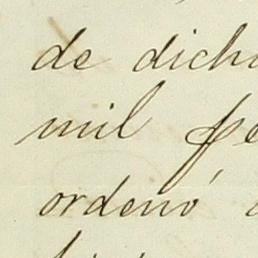 de dich
mil pe
ordenó